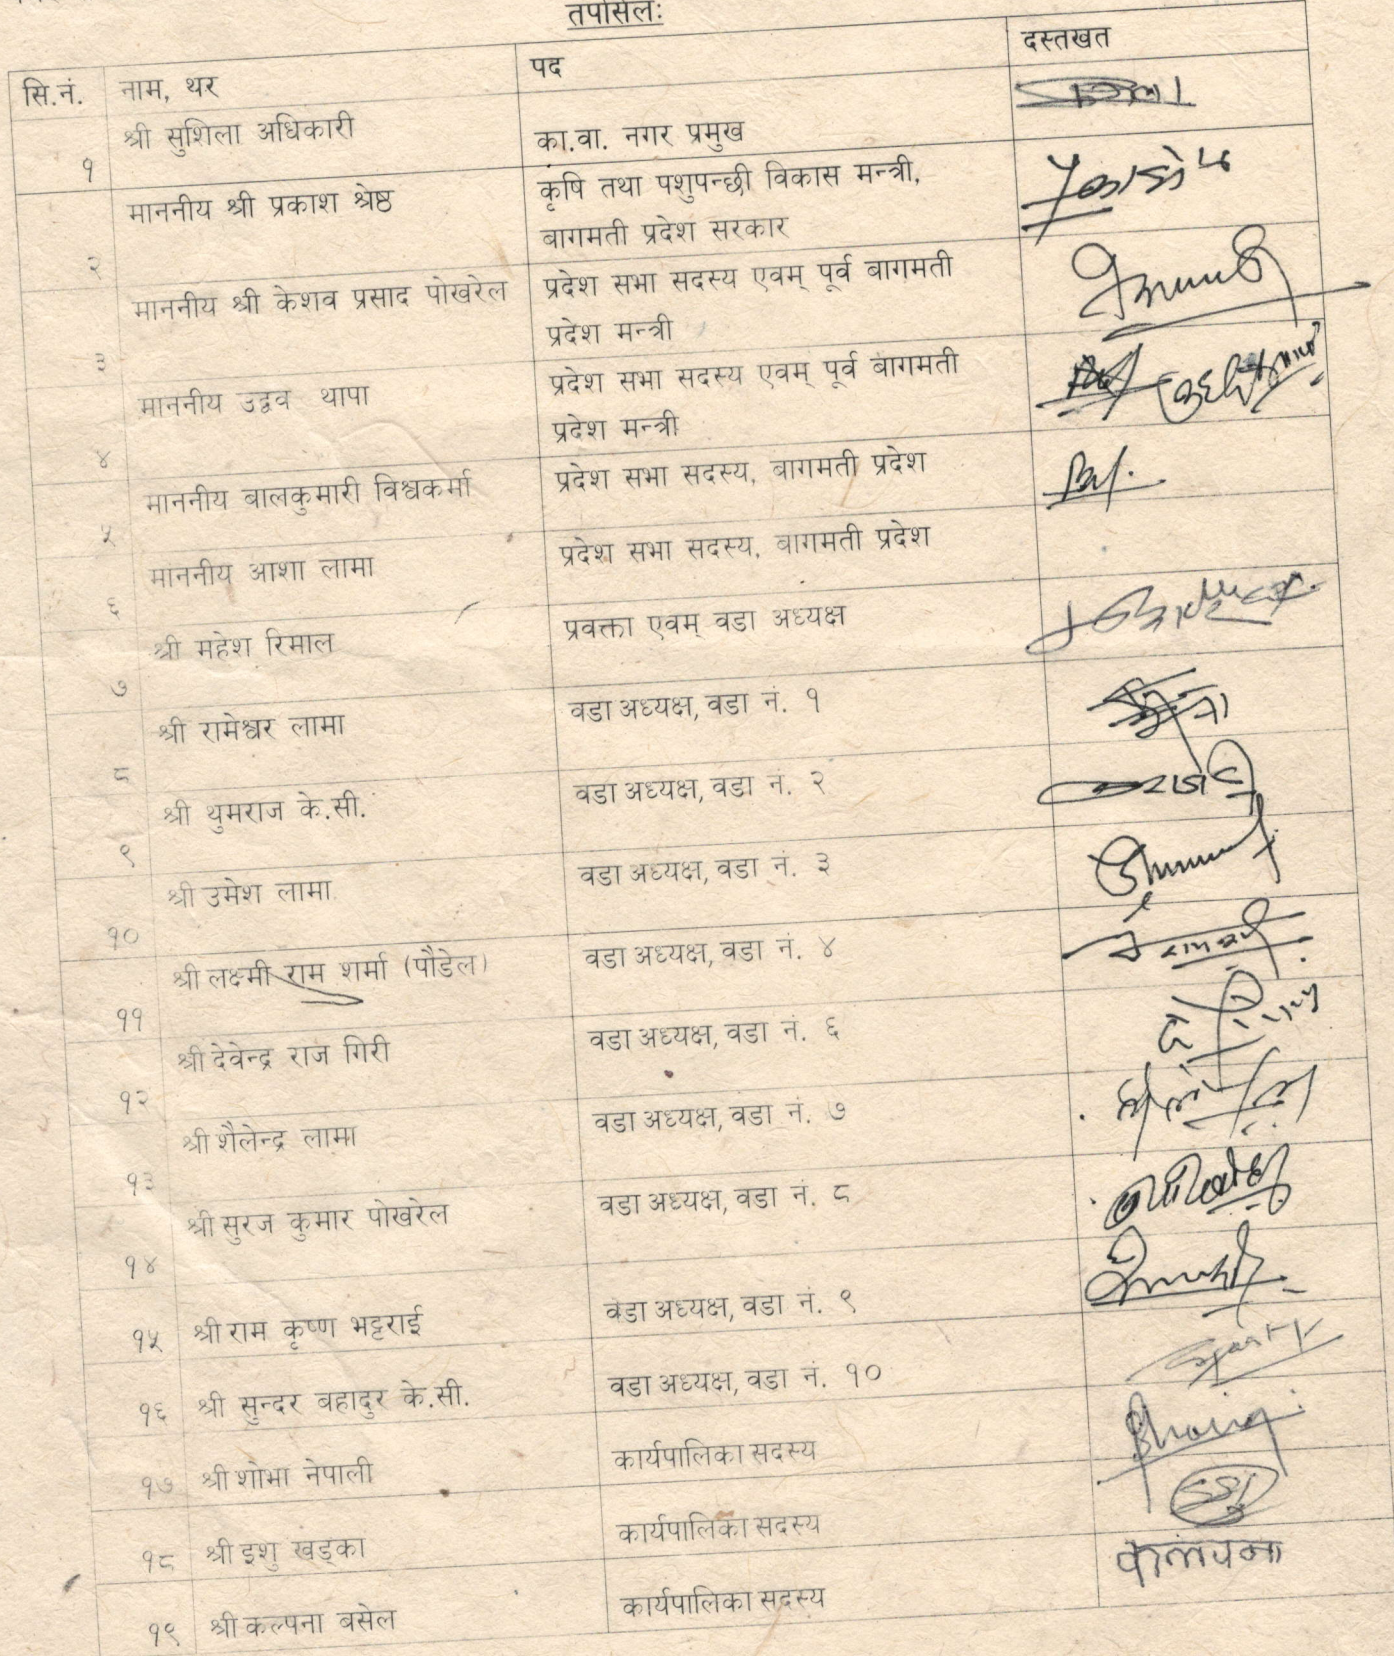 तपसिलः
सि.नं. नाम, थर पद दस्तखत
१ श्री सुशिला अधिकारी का.वा. नगर प्रमुख
२ माननीय श्री प्रकाश श्रेष्ठ कृषि तथा पशुपन्छी विकास मन्त्री,
बागमती प्रदेश सरकार
३ माननीय श्री केशव प्रसाद पोखरेल प्रदेश सभा सदस्य एवम् पूर्व बागमती
प्रदेश मन्त्री
४ माननीय उद्वव थापा प्रदेश सभा सदस्य एवम् पूर्व बागमती
प्रदेश मन्त्री
५ माननीय बालकुमारी विश्वकर्मा प्रदेश सभा सदस्य, बागमती प्रदेश
६ माननीय आशा लामा प्रदेश सभा सदस्य, बागमती प्रदेश
७ श्री महेश रिमाल प्रवक्ता एवम् वडा अध्यक्ष
८ श्री रामेश्वर लामा वडा अध्यक्ष, वडा नं. १
९ श्री थुमराज के.सी. वडा अध्यक्ष, वडा नं. २
१० श्री उमेश लामा वडा अध्यक्ष, वडा नं. ३
११ श्री लक्ष्मी राम शर्मा (पौडेल) वडा अध्यक्ष, वडा नं. ४
१२ श्री देवेन्द्र राज गिरी वडा अध्यक्ष, वडा नं. ६
१३ श्री शैलेन्द्र लामा वडा अध्यक्ष, वडा नं. ७
१४ श्री सुरज कुमार पोखरेल वडा अध्यक्ष, वडा नं. ८
१५ श्री राम कृष्ण भट्टराई वडा अध्यक्ष, वडा नं. ९
१६ श्री सुन्दर बहादुर के.सी. वडा अध्यक्ष, वडा नं. १०
१७ श्री शोभा नेपाली कार्यपालिका सदस्य
१८ श्री इशु खड्का कार्यपालिका सदस्य
१९ श्री कल्पना बसेल कार्यपालिका सदस्य कल्पना